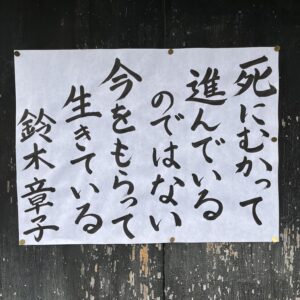 死にむかって
進んでいる
のではない
今をもらって
生きている
鈴木章子